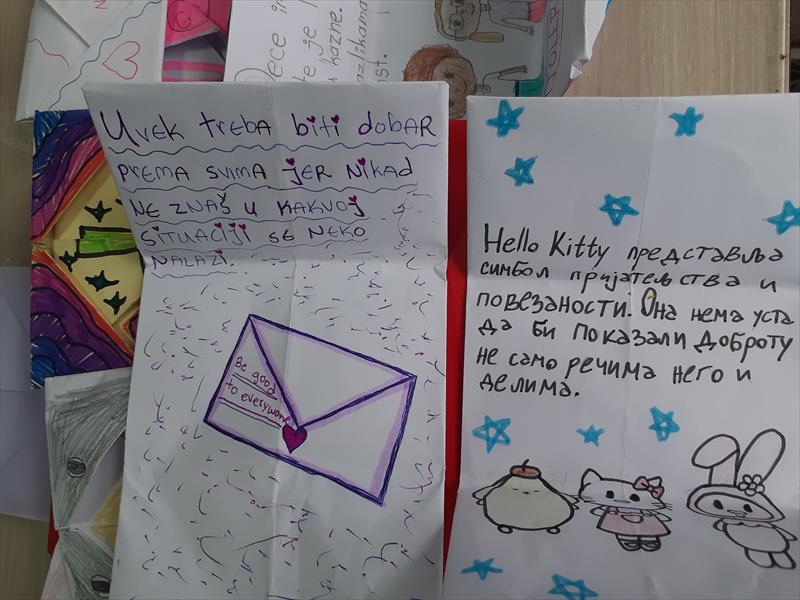 Uvek treba biti dobar
prema svima jer nikad
ne znaš u kakvoj
situaciji se neko
nalazi.
Be good
to everywone
Hello Kitty представља
симбол пријатељства и
повезаности. Она нема уста
да би показали доброту
не само речима него и
делима.